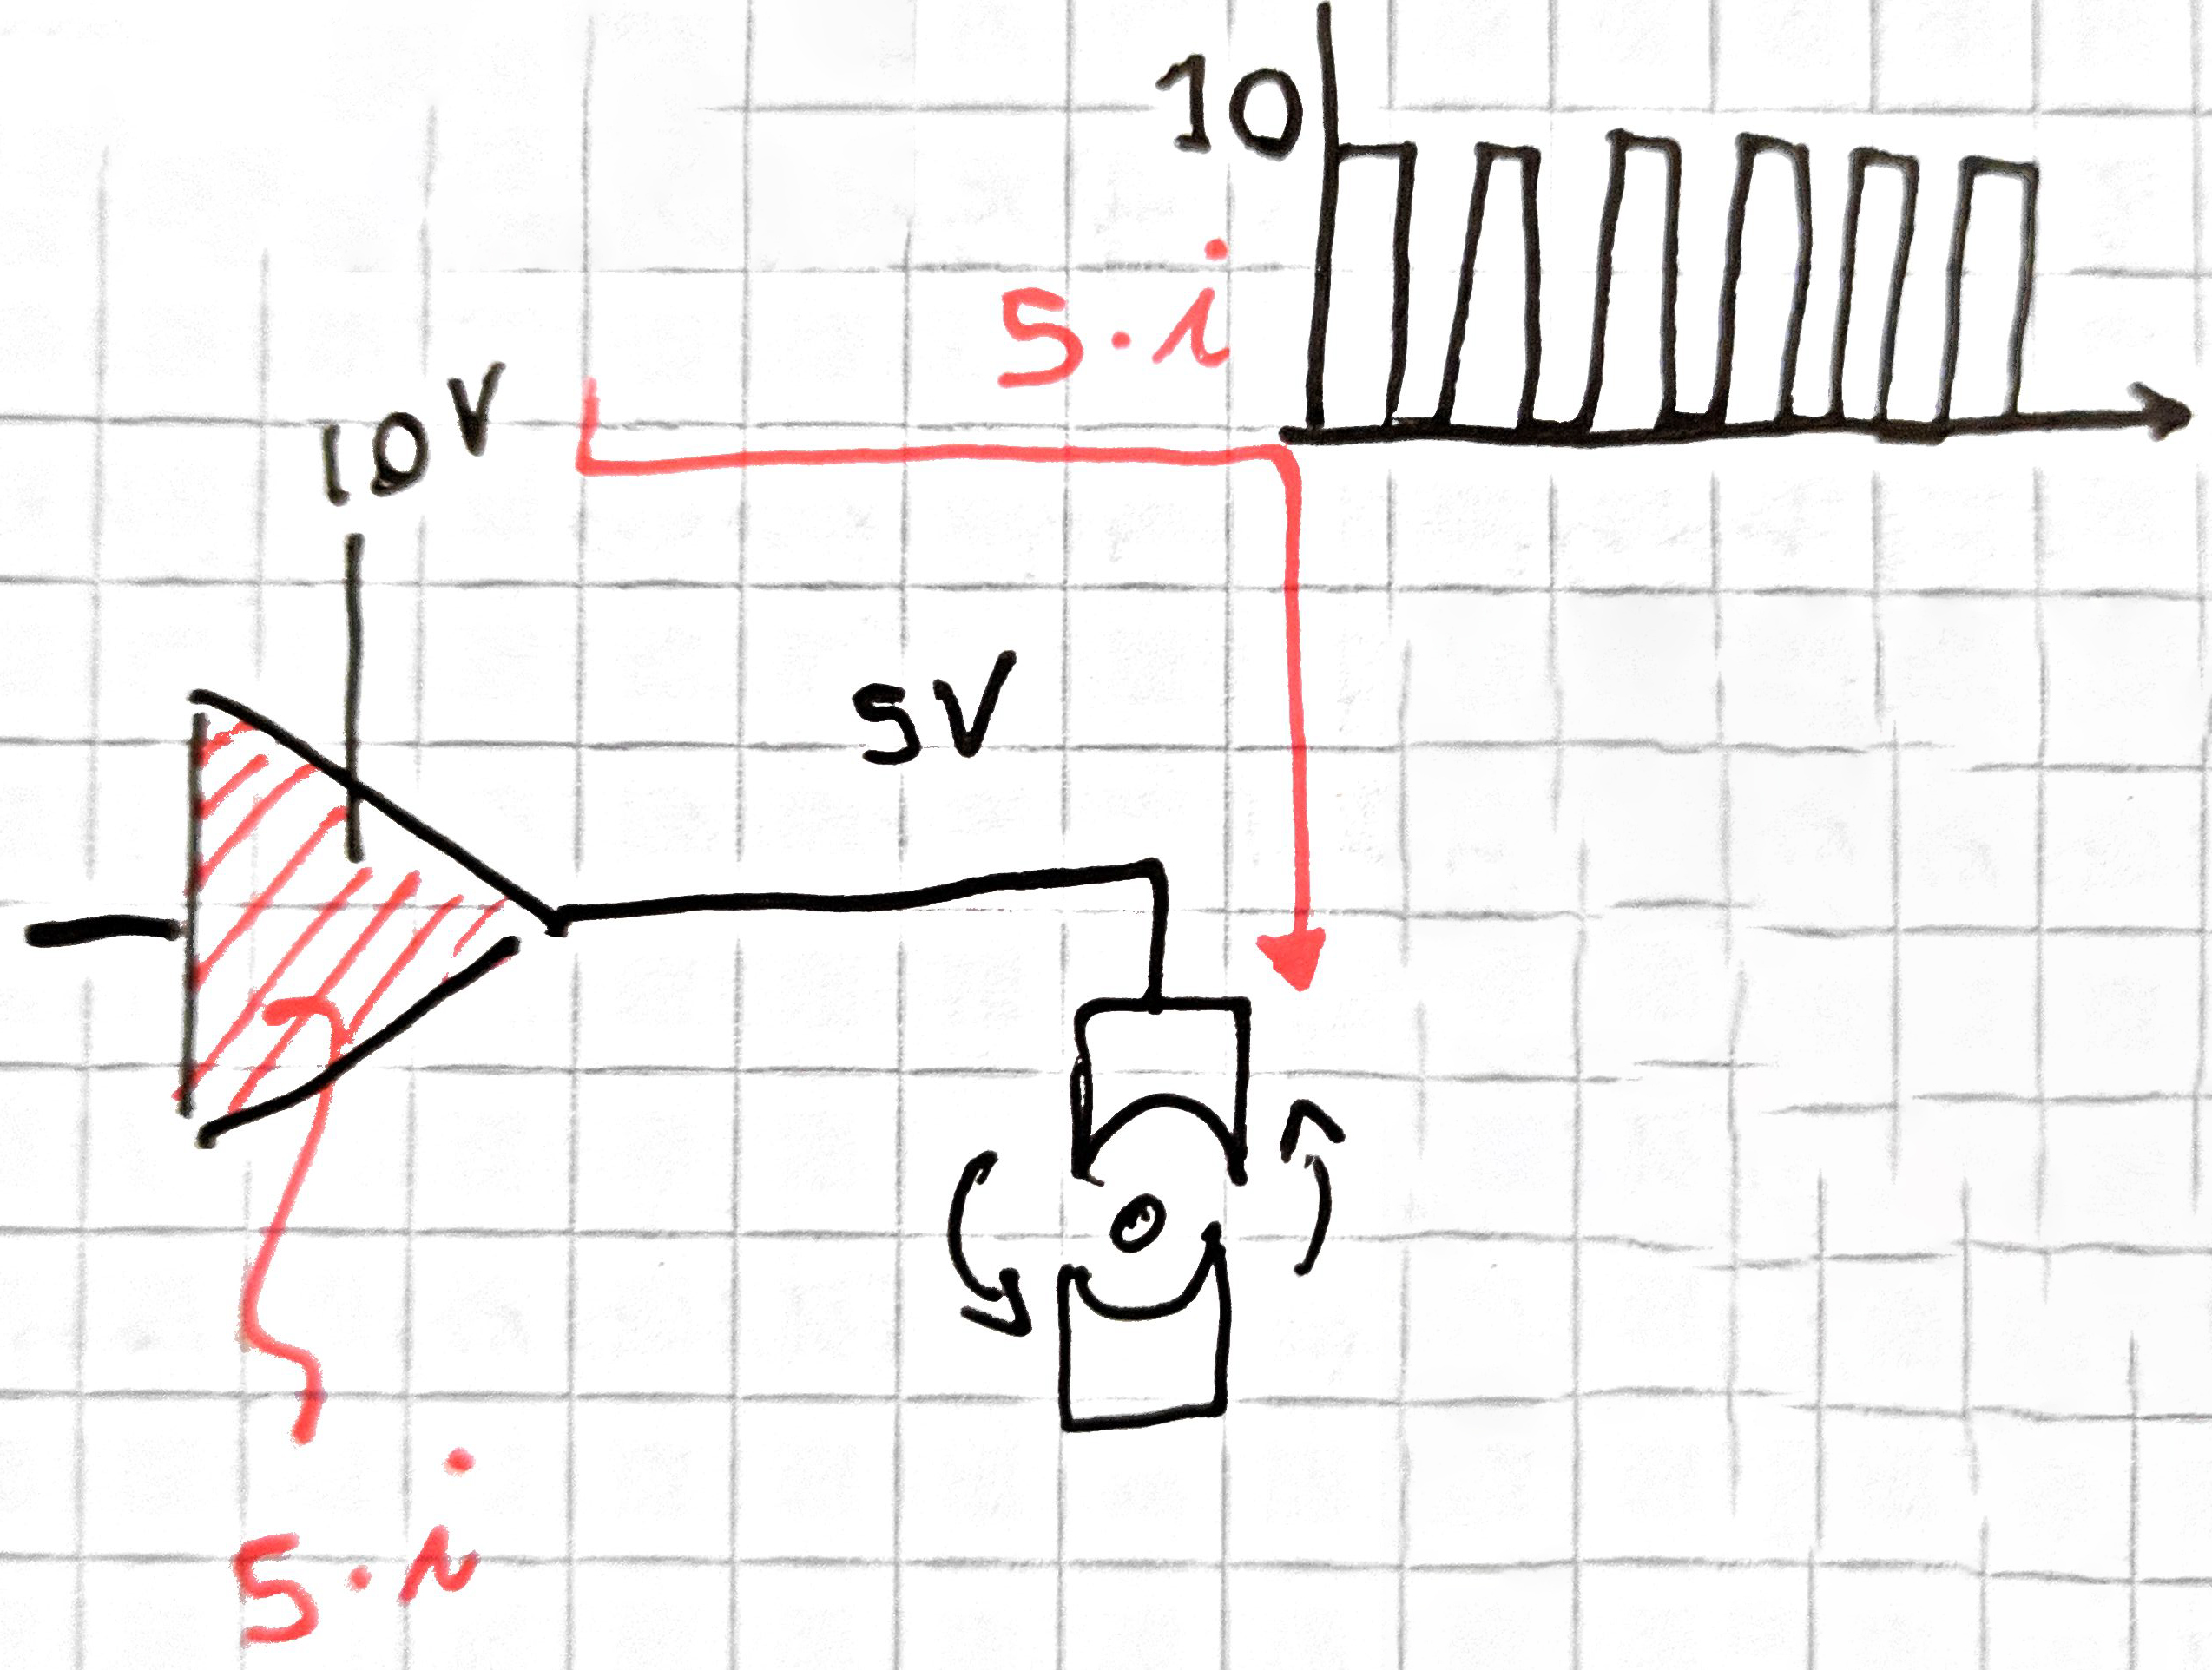 10
5·i
10V
5V
5·i